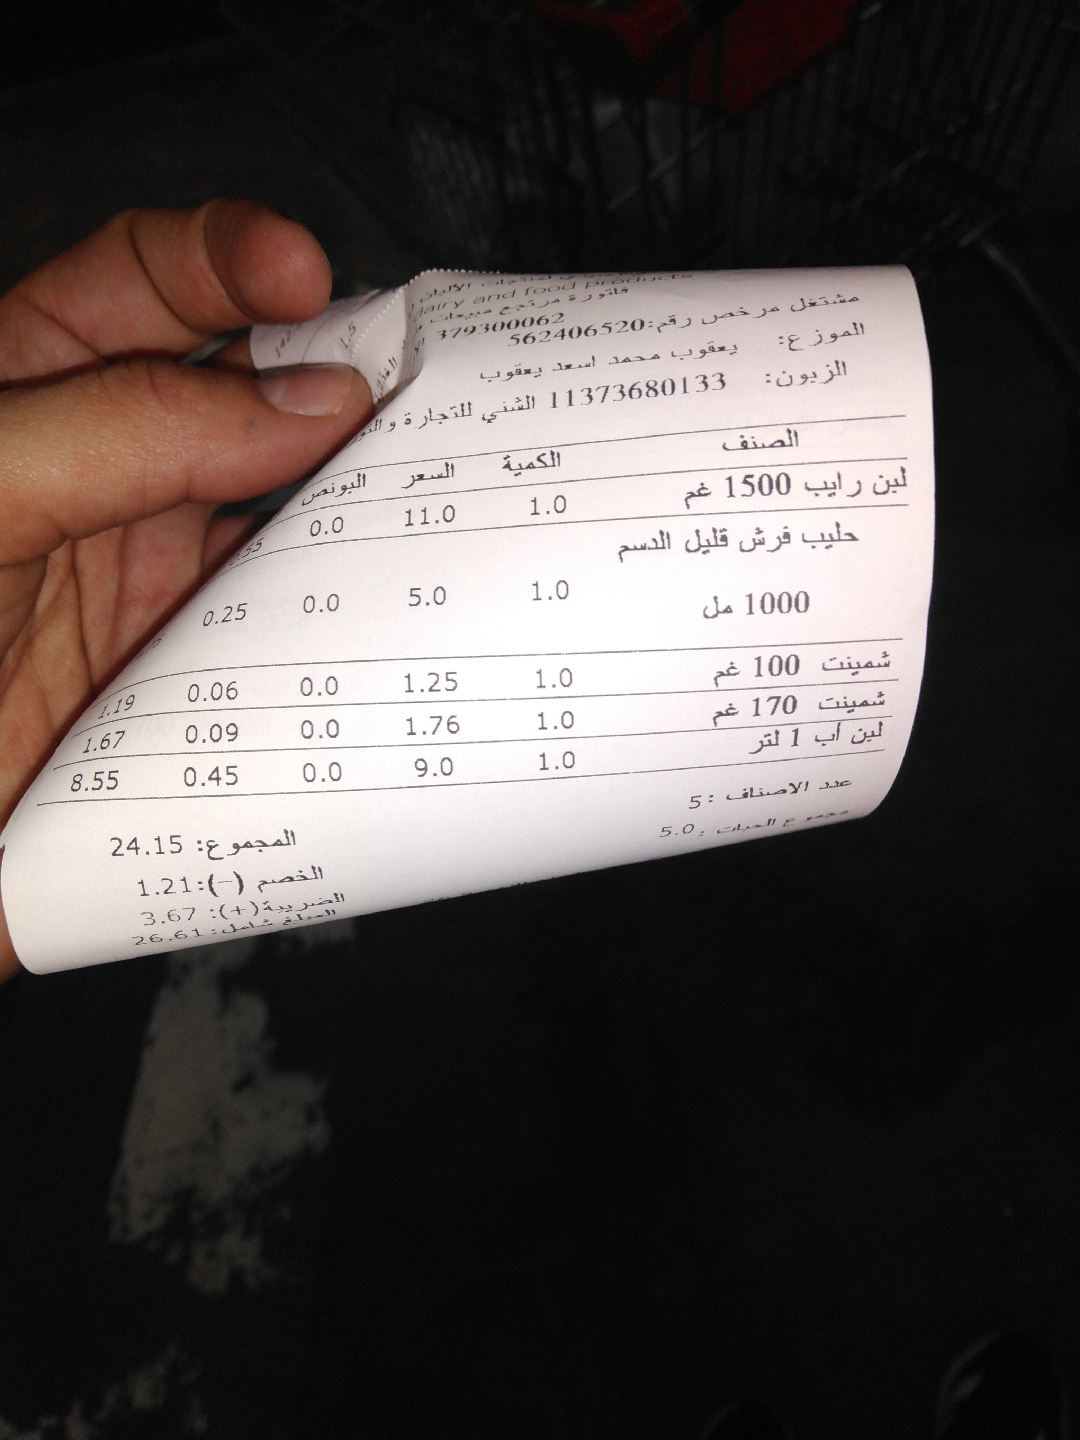 لمنتجات الألبان
dairy and food products
فاتورة مرتجع مبيعات
379300062
مشتغل مرخص رقم:562406520
الموزع: يعقوب محمد اسعد يعقوب
الزبون: 11373680133 الشني للتجارة
الصنف الكمية السعر البونص
لبن رايب 1500 غم 1.0 11.0 0.0
حليب فرش قليل الدسم
1000 مل 1.0 5.0 0.0 0.25
شمينت 100 غم 1.0 1.25 0.0 0.06 1.19
شمينت 170 غم 1.0 1.76 0.0 0.09 1.67
لبن أب 1 لتر 1.0 9.0 0.0 0.45 8.55
عدد الاصناف : 5
مجموع الحبات : 5.0
المجموع: 24.15
الخصم (-):1.21
الضريبة(+): 3.67
المبلغ شامل: 26.61